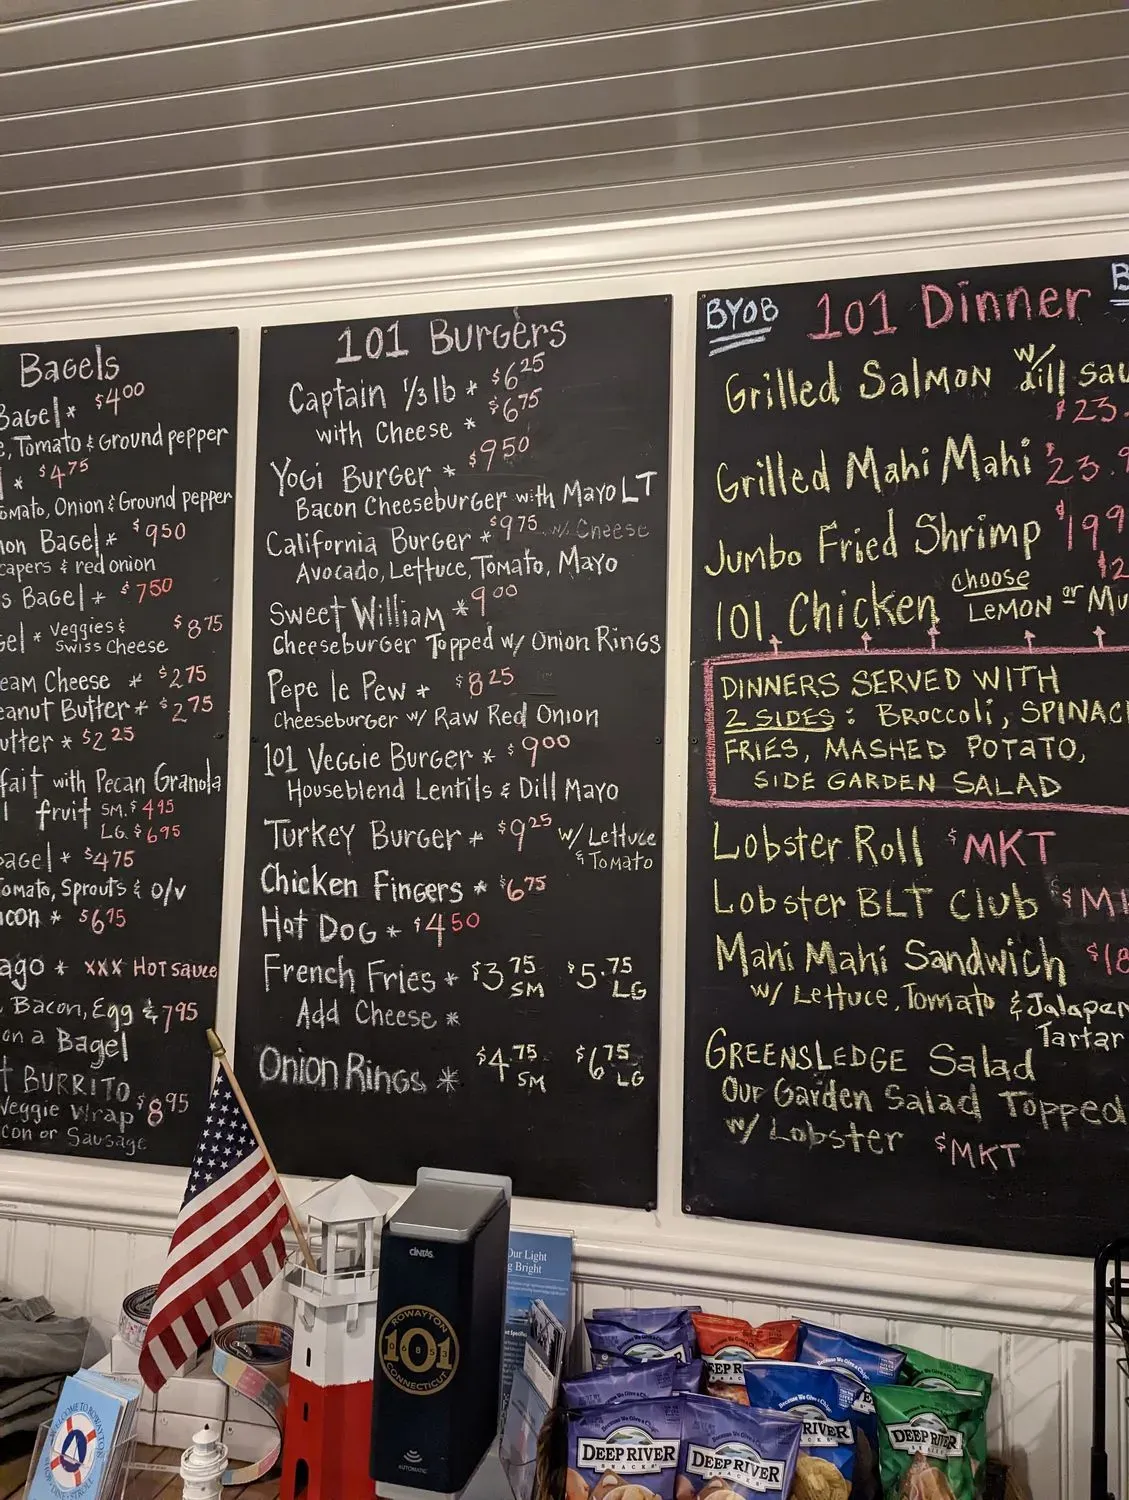 Bagels
Bagel* $4.00
, Tomato & Ground pepper
* $4.75
Tomato, Onion & Ground pepper
Bagel* $9.50
capers & red onion
Bagel* $7.50
* Veggies & Swiss Cheese $8.75
Cream Cheese * $2.75
Peanut Butter* $2.75
Butter * $2.25
with Pecan Granola
fruit SM. $4.95
LG. $6.95
Bagel * $4.75
Tomato, Sprouts & o/v
* $6.75
* XXX Hot sauce
Bacon, Egg & 7.95
on a Bagel
BURRITO $8.95
Veggie Wrap
or Sausage
101 Burgers
Captain 1/3 lb * $6.25
with Cheese * $6.75
Yogi Burger * $9.50
Bacon Cheeseburger with Mayo LT
California Burger * $9.75 w/ Cheese
Avocado, Lettuce, Tomato, Mayo
Sweet William * 9.00
Cheeseburger Topped w/ Onion Rings
Pepe le Pew * $8.25
Cheeseburger w/ Raw Red Onion
101 Veggie Burger * $9.00
Houseblend Lentils & Dill Mayo
Turkey Burger * $9.25 w/ Lettuce
& Tomato
Chicken Fingers * $6.75
Hot Dog * $4.50
French Fries * $3.75 SM $5.75 LG
Add Cheese *
Onion Rings * $4.75 SM $6.75 LG
BYOB 101 Dinner
Grilled Salmon w/ dill
$23.
Grilled Mahi Mahi $23.
Jumbo Fried Shrimp $19
101 Chicken choose LEMON or
DINNERS SERVED WITH
2 SIDES: BROCCOLI, SPINAC
FRIES, MASHED POTATO,
SIDE GARDEN SALAD
Lobster Roll $MKT
Lobster BLT Club
Mahi Mahi Sandwich $18
w/ Lettuce, Tomato & Jalapen
Tartar
GREENSLEDGE Salad
Our Garden Salad Topped
w/ Lobster $MKT
CINTAS
ROWAYTON
101
06853
CONNECTICUT
AUTOMATIC
Our Light
Bright
WELCOME TO ROWAYTON
Because We Give a Chip!
DEEP RIVER
SNACKS
DEEP RIVER
SNACKS
DEEP R
RIVER
DEEP RIVER